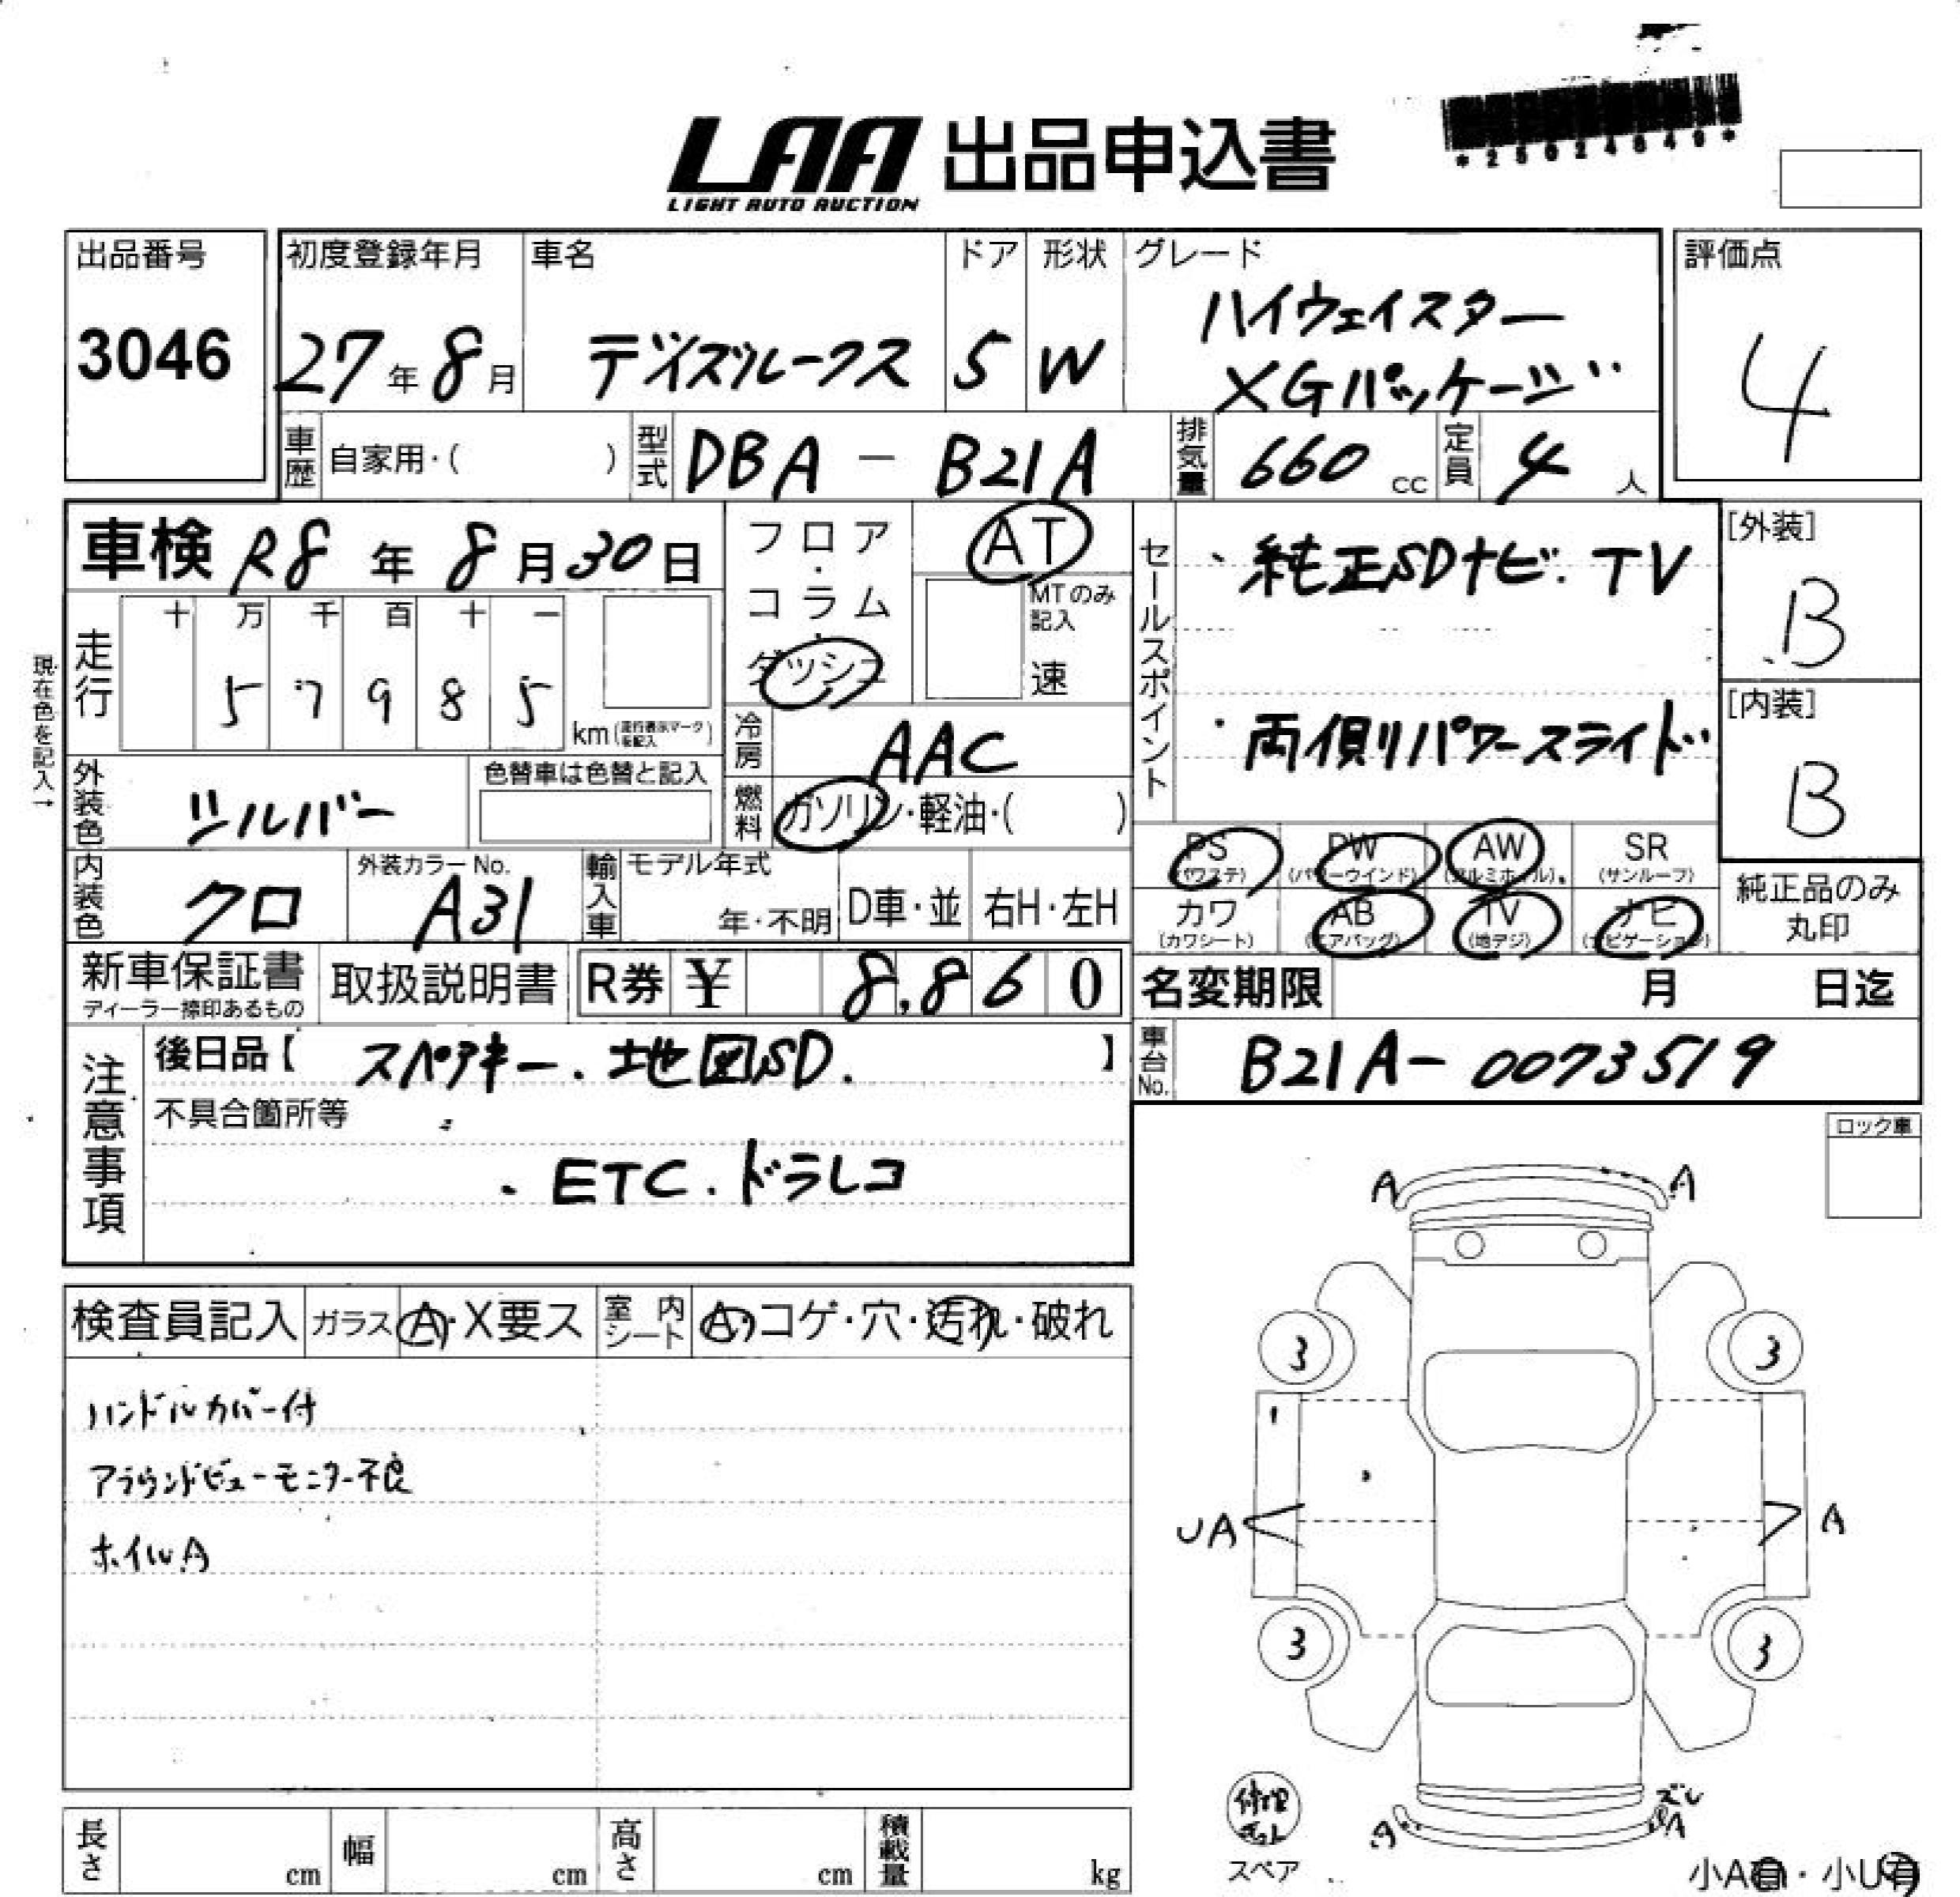 *25024649*
LAA 出品申込書
LIGHT AUTO AUCTION
出品番号
3046
初度登録年月
27年8月
車名
デイズルークス
ドア
5
形状
W
グレード
ハイウェイスター
XGパッケージ
評価点
4
車歴
自家用・( )
型式
DBA-B21A
排気量
660cc
定員
4人
車検 R8年8月30日
フロア・コラム・ダッシュ
AT
MTのみ記入
速
セールスポイント
・純正SDナビ.TV
・両側パワースライド
[外装]
B
[内装]
B
現在色を記入→
走行
十 万 千 百 十 一
5 7 9 8 5
km(走行表示マークを記入)
冷房
AAC
燃料
ガソリン・軽油・( )
外装色
シルバー
色替車は色替と記入
内装色
クロ
外装カラーNo.
A31
輸入車
モデル年式
年・不明
D車・並
右H・左H
PS
(パワステ)
PW
(パワーウインド)
AW
(アルミホイル)
SR
(サンルーフ)
カワ
(カワシート)
AB
(エアバッグ)
TV
(地デジ)
ナビ
(ナビゲーション)
純正品のみ
丸印
新車保証書
ディーラー捺印あるもの
取扱説明書
R券 ¥ 8,860
名変期限 月 日迄
車台No.
B21A-0073519
注意事項
後日品【 スペアキー.地図SD. 】
不具合箇所等
・ETC.ドラレコ
ロック車
検査員記入
ガラス
A・X要ス
室内シート
A・コゲ・穴・汚れ・破れ
ハンドルカバー付
アラウンドビューモニター不良
ホイルA
A
A
3
3
UA
A
3
3
修理キット
スペア
A
ズレ
A
小A有・小U有
長さ
cm
幅
cm
高さ
cm
積載量
kg